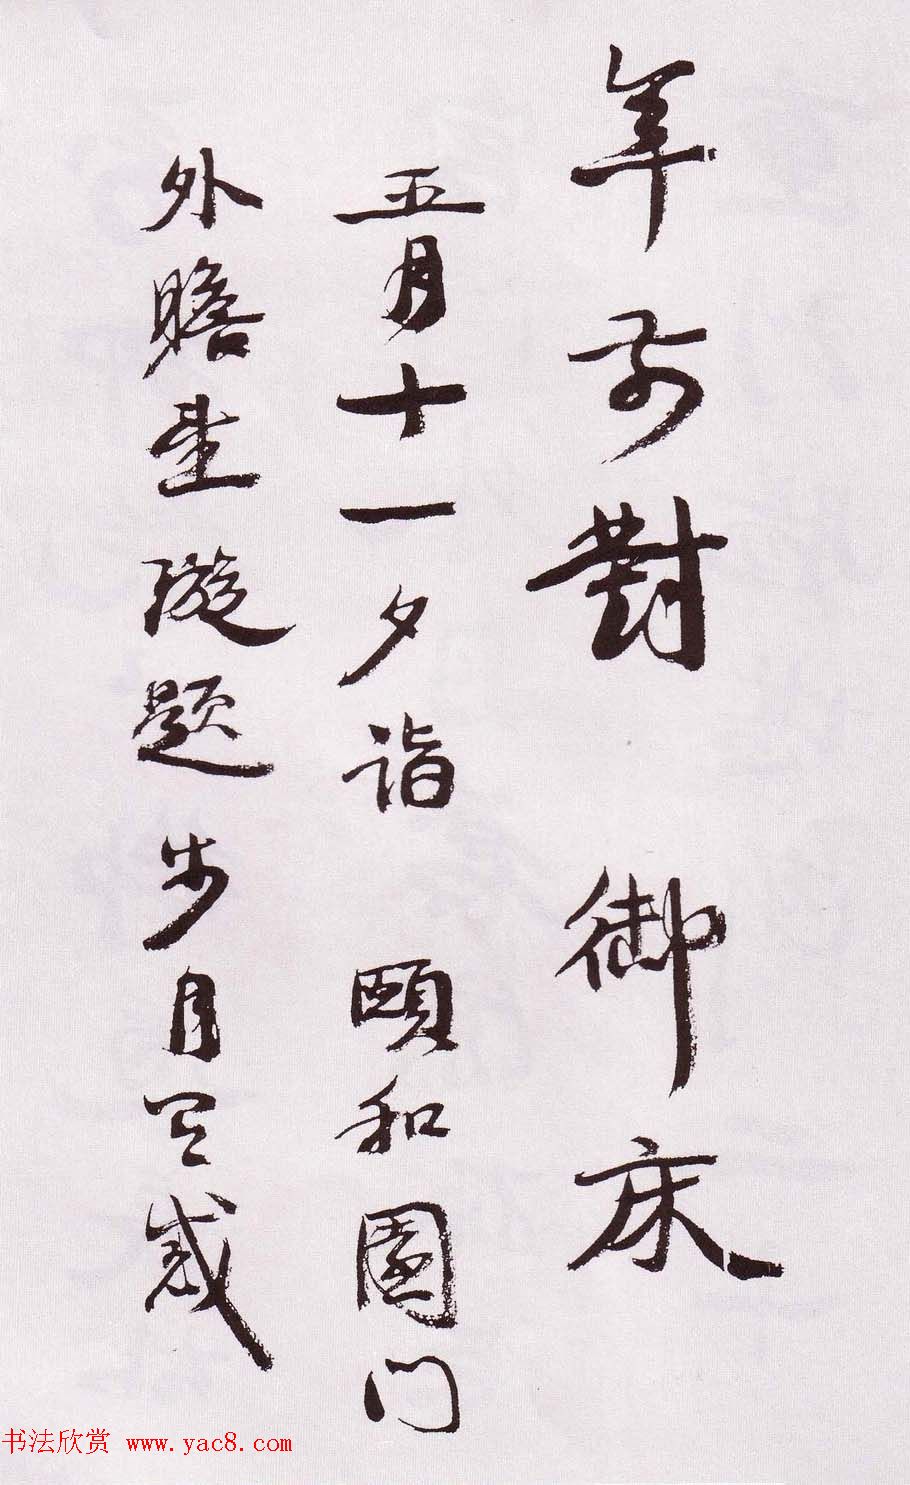 年前對 御床
五月十一夕詣 頤和園門
外瞻望璇題步月 感
书法欣赏 www.yac8.com